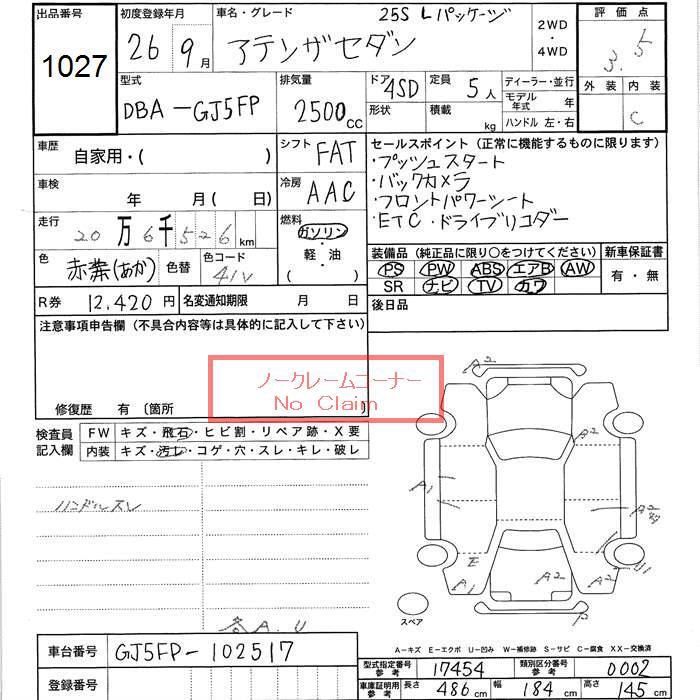 出品番号 初度登録年月 車名・グレード 25S Lパッケージ 2WD ・ 4WD 評価点
1027 26 9月 アテンザセダン 3.5
外装 内装
C
型式 排気量 ドア 4SD 定員 5人 ディーラー・並行
DBA-GJ5FP 2500cc 形状 積載 kg モデル年式 年
ハンドル 左・右
車歴 自家用・( ) シフト FAT セールスポイント(正常に機能するものに限ります)
・プッシュスタート
車検 年 月(日) 冷房 AAC ・バックカメラ
・フロントパワーシート
走行 20万6千526km 燃料 ガソリン ・ETC・ドライブリコーダー
・軽・油
( )
色 赤葉(あか) 色替 色コード 41V
装備品(純正品に限り〇をつけてください) 新車保証書
PS PW ABS エアB AW 有・無
SR ナビ TV カワ
R券 12,420円 名変通知期限 月 日 後日品
注意事項申告欄(不具合内容等は具体的に記入して下さい)
ノークレームコーナー
No Claim
修復歴 有〔箇所 〕
検査員記入欄 FW キズ・飛石・ヒビ割・リペア跡・X要
内装 キズ・汚れ・コゲ・穴・スレ・キレ・破レ
ハンドルスレ
A2
B2
A1
A2
E
A1
A2
A2
U1
P
スペア
各A.U
A-キズ E-エクボ U-凹み W-補修跡 S-サビ C-腐食 XX-交換済
車台番号 GJ5FP-102517
登録番号
型式指定番号参考 17454 類別区分番号参考 0002
車庫証明用参考 長さ 486cm 幅 184cm 高さ 145cm